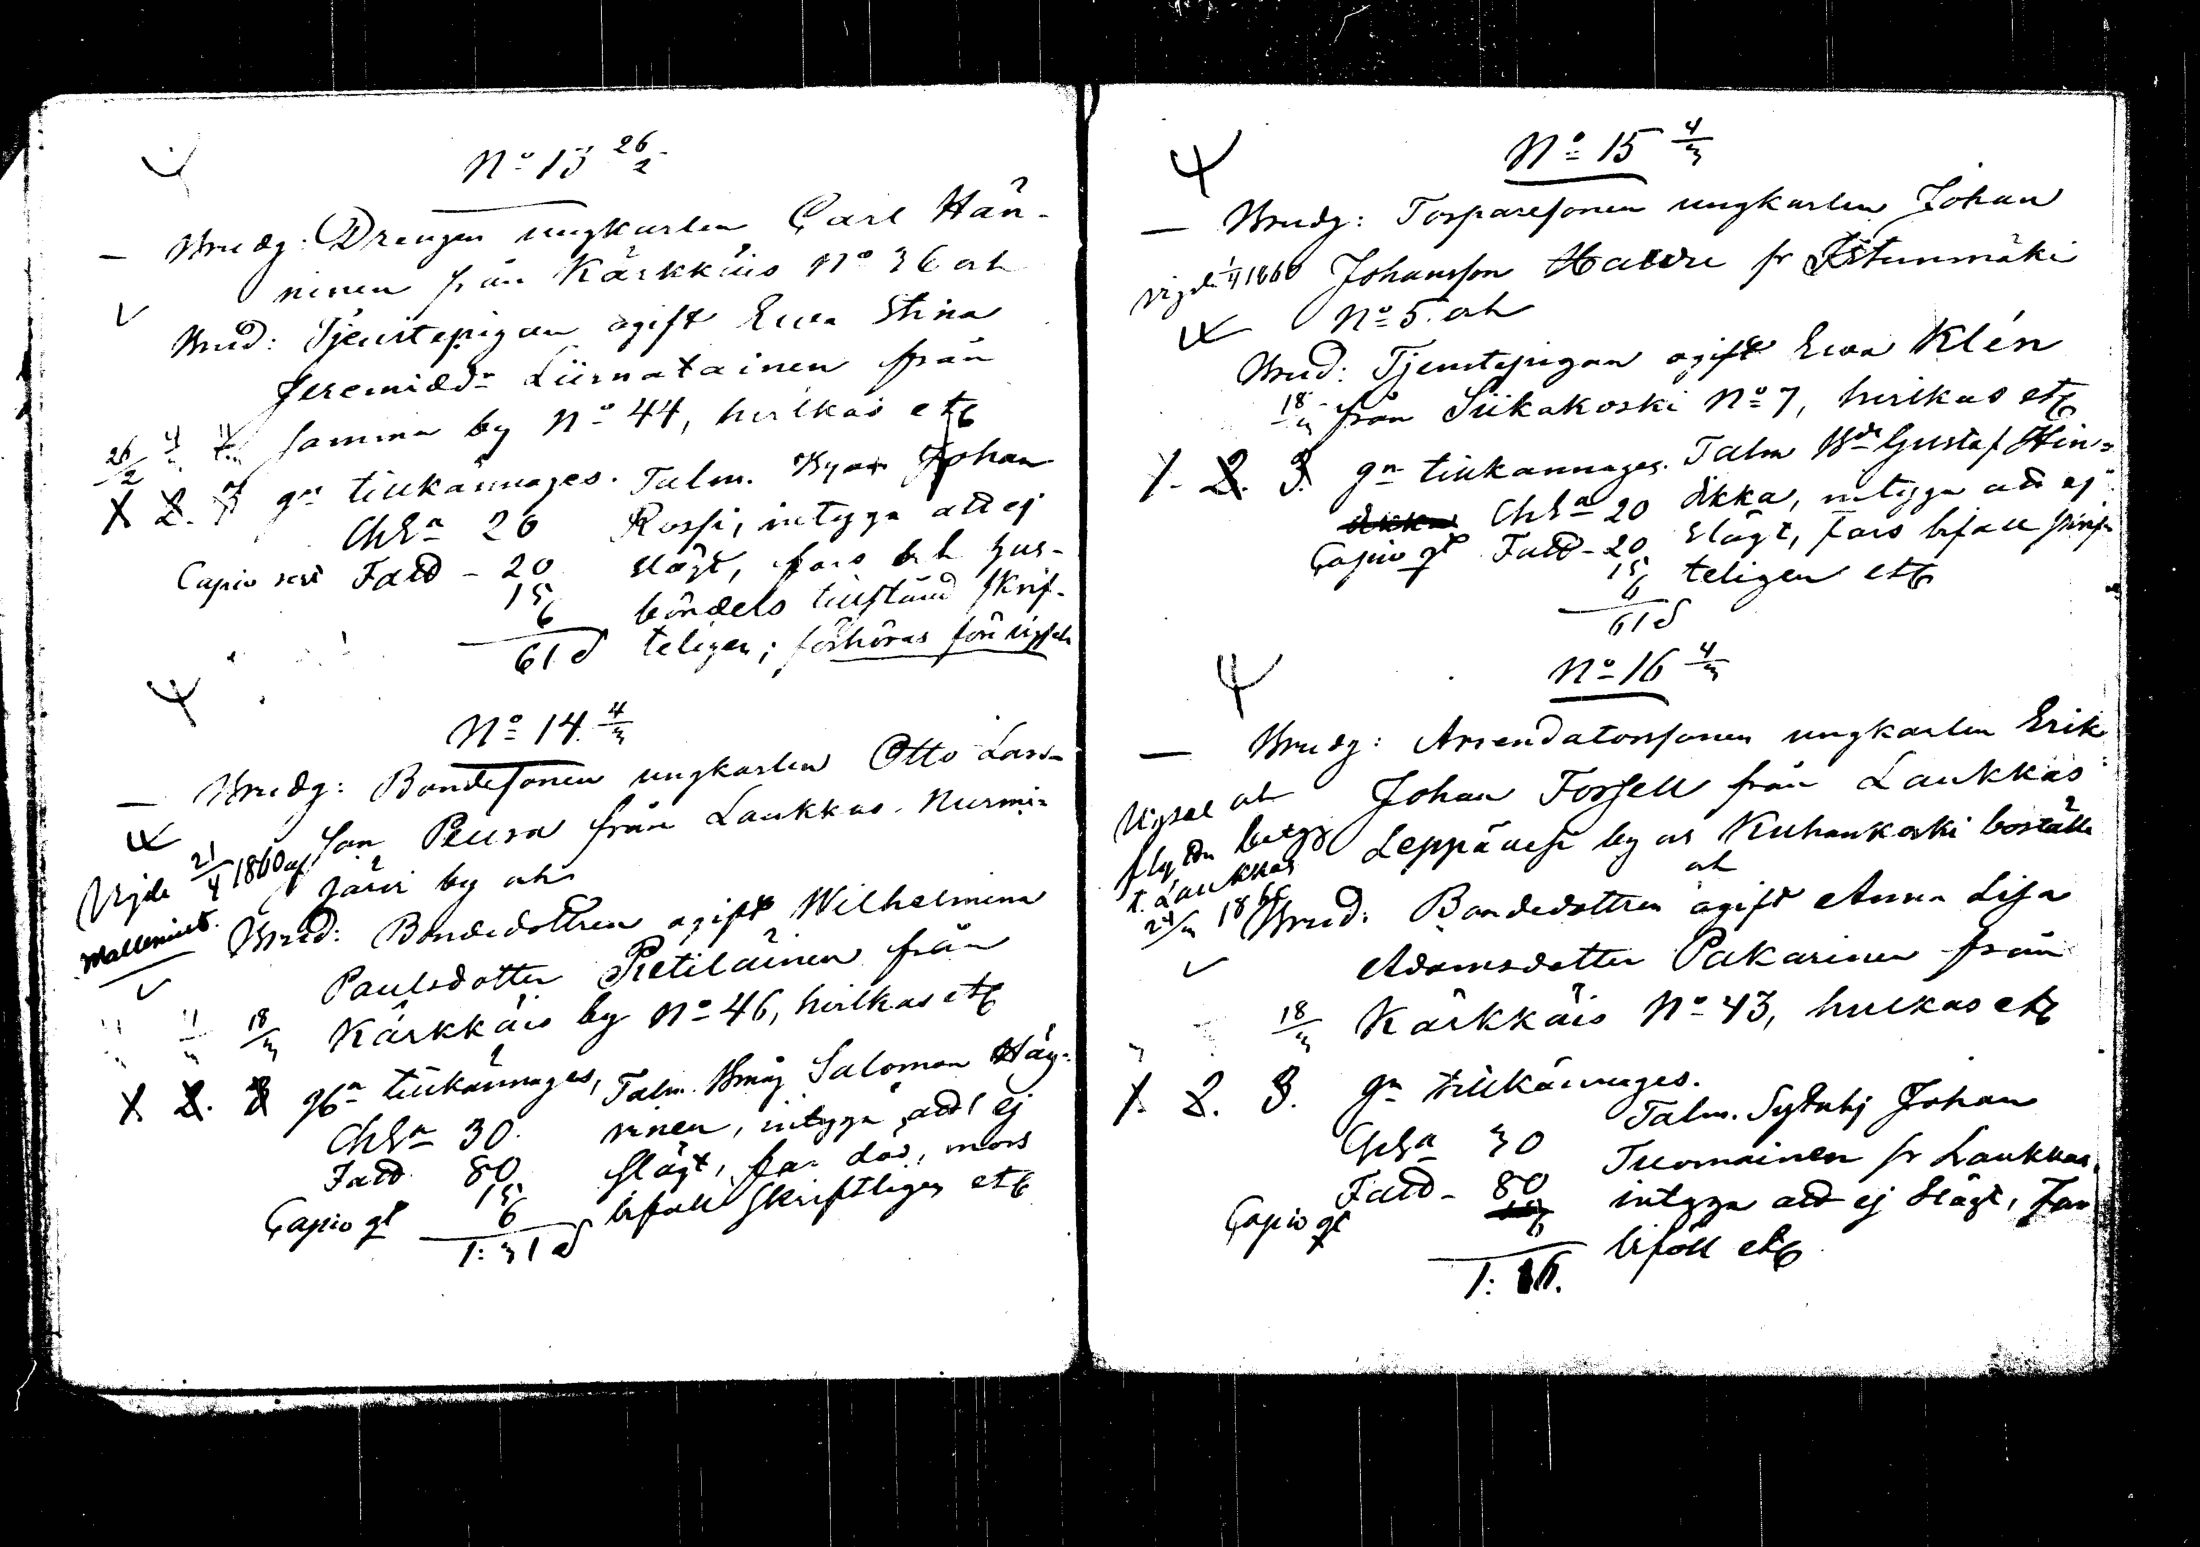 No 13 26/2
Brudg: Drengen ungkarlen Carl Hän-
ninen från Kärkkäis No 36 och
Brud: Tjenstepigan ogift Ewa Stina
Jeremiædr Liimatainen från
samma by No 44, hvilkas etc
26/2 4/3 11/3
1 2. 3 gn tillkännages. Talm. Johan
Rossi, intyga att ej
ChSn 20
Capio Fatd - 20 slägt, fars och hus-
15 böndels tillstånd skrif-
6 teligen; förhöras före vigseln
61 d
No 14. 4/3
Brudg: Bondesonen ungkarlen Otto Lars-
son Peura från Laukkas Nurmi-
järvi by och
Vigde 21/4 1860 af
Mallenius.
Brud: Bondedottren ogift Wilhelmina
Paulsdotter Pietiläinen från
Kärkkäis by No 46, hvilkas etc
11/3 18/3
1 2. 3 gn tillkännages, Talm. Salomon Häy-
rinen, intyga att ej
ChSn 30. slägt, far död, mors
Fatd 80 bifall skriftligen etc
15
Capio gt 6
1: 31 d
No 15 4/3
Brudg: Torparesonen ungkarlen Johan
Johansson fr Istunmäki
No 5. och
vigde 1/4 1860
Brud: Tjenstepigan ogift Ewa Klén
från Siikakoski No 7, hvilkas etc
18/3
1. 2. 3. gn tillkännages. Talm Bdn Gustaf Hin-
ikka, intyga att ej
ChSn 20 slägt, fars bifall skrif-
Capio gt Fatd - 20 teligen etc
15
6
61 d
No 16 4/3
Brudg: Arrendatorssonen ungkarlen Erik
Johan Forsell från Laukkas
Leppävesi by och Kuhankoski boställe
och
Vigsel och
flyttn betyg
t. Laukkas
24/3 1860
Brud: Bondedottren ogift Anna Lisa
Adamsdotter Pakarinen från
Kärkkäis No 43, hvilkas etc
18/3
1. 2. 3. gn tillkännages.
Talm. Johan
ChSn 30 Tuomainen fr Laukkas,
Fatd - 80 intyga att ej slägt, Far
Capio gt 6 bifall etc
1: 16.